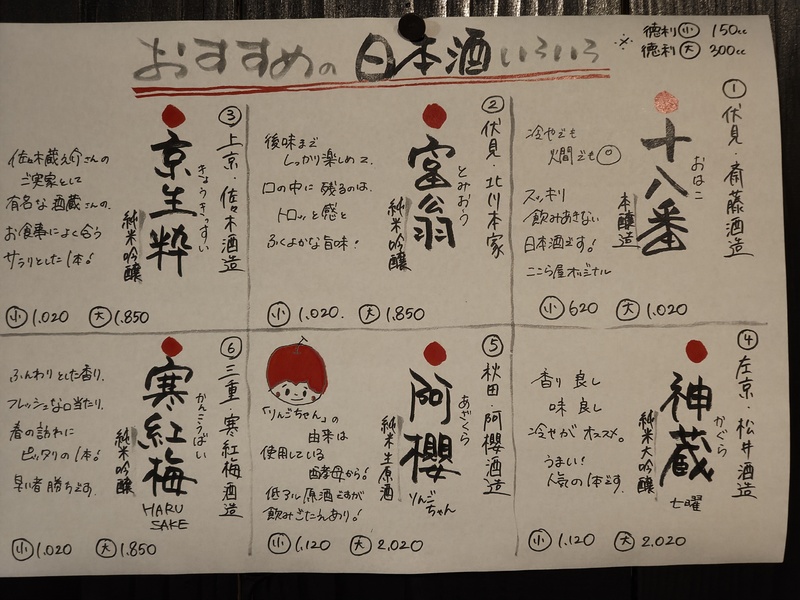 おすすめの日本酒いろいろ
※ 徳利(小) 150cc
徳利(大) 300cc
① 伏見・斎藤酒造
おはこ
十八番
本醸造
冷やでも
燗でも◎
スッキリ
飲みあきない
日本酒です!
ここら屋オリジナル
(小) 620 (大) 1.020
② 伏見・北川本家
とみおう
富翁
純米吟醸
後味まで
しっかり楽しめて、
口の中に残るのは、
トロッと感と
ふくよかな旨味!
(小) 1.020. (大) 1.850
③ 上京・佐々木酒造
きょうきっすい
京生粋
純米吟醸
佐々木蔵之介さんの
ご実家として
有名な酒蔵さんの、
お食事によく合う
サラリとした1本!
(小) 1.020 (大) 1.850
④ 左京・松井酒造
かぐら
神蔵
七曜
純米大吟醸
香り良し
味良し
冷やがオススメ。
うまい!
人気の1本です。
(小) 1.120 (大) 2.020
⑤ 秋田・阿櫻酒造
あざくら
阿櫻
りんごちゃん
純米生原酒
「りんごちゃん」の
由来は
使用している
酵母から!
低アル原酒ですが
飲みごたえあり!
(小) 1.120 (大) 2.020
⑥ 三重・寒紅梅酒造
かんこうばい
寒紅梅
HARU
SAKE
純米吟醸
ふんわりとした香り、
フレッシュな口当たり、
春の訪れに
ピッタリの1本!
早い者勝ちです。
(小) 1.020 (大) 1.850